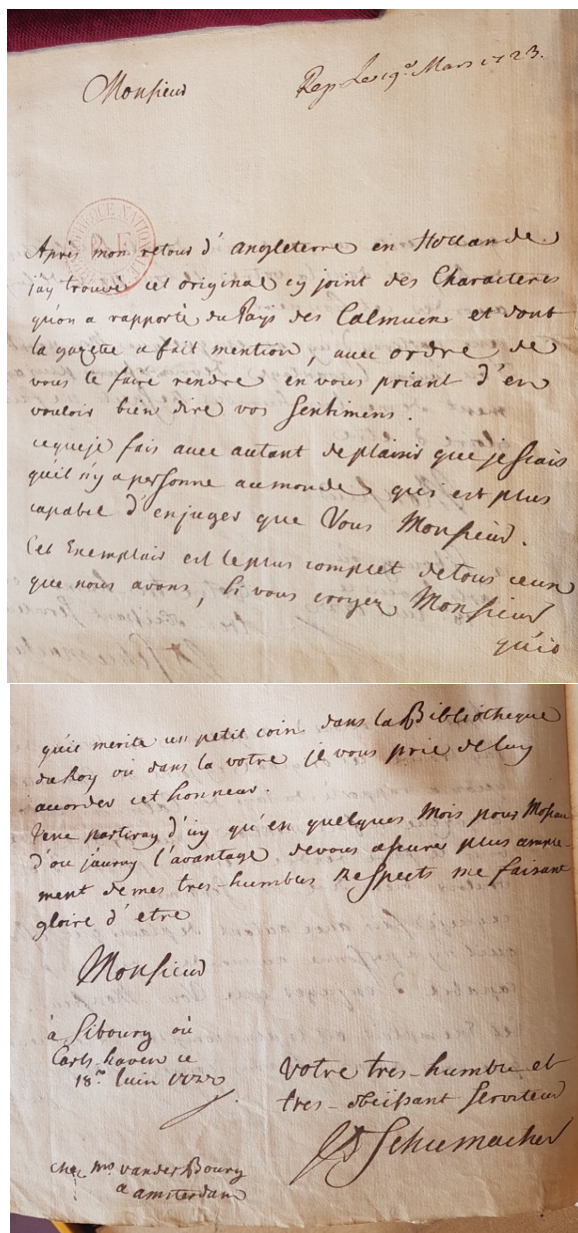 Monsieur
Rep. Le 19e. Mars 1723.
Après mon retour d'angleterre en Hollande
j'ay trouvé cet original cy joint des Characteres
qu'on a rapporté du Pays des Calmucus et dont
la gazette a fait mention, avec ordre de
vous le faire rendre en vous priant d'en
vouloir bien dire vos sentimens.
ceque je fais avec autant de plaisir que je scais
qu'il n'y a personne au monde qui est plus
capabel d'en juger que Vous Monsieur.
Cet Exemplair est le plus complet de tous ceux
que nous avons, si vous croyez Monsieur
qu'il
qu'il merite un petit coin dans la Bibliotheque
du Roy ou dans la votre je vous prie de luy
accorder cet honneur.
Je ne partiray d'icy qu'en quelques Mois pour Moscau
d'ou j'auray l'avantage de vous assurer plus ample-
ment de mes tres-humbles Respects me faisant
gloire d'etre
Monsieur
à Sibourg ou
Carls-haven ce
18.me Juin 1722
Votre tres-humble et
tres-obeissant Serviteur
JD Schumacher
chez Mr. vander Bourg
a amsterdam